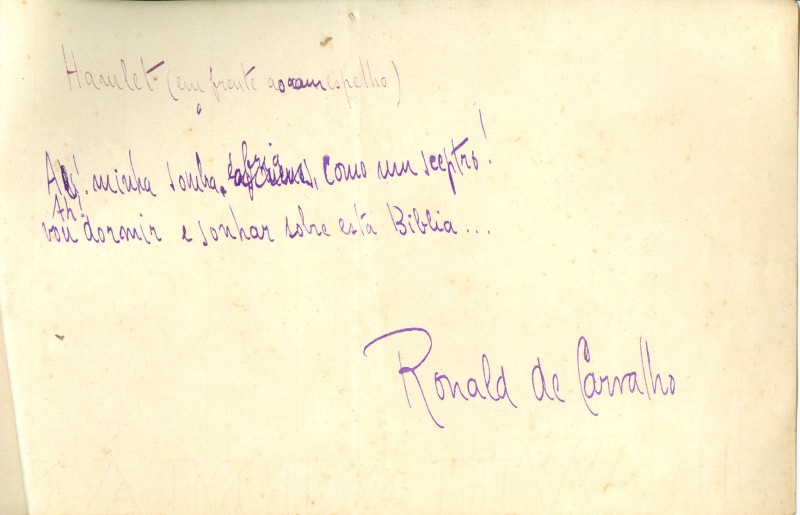 Hamlet (em frente ao espelho)
Ah! minha sombra, como um sceptro!
Ah!
vou dormir e sonhar sobre esta Biblia...
Ronald de Carvalho